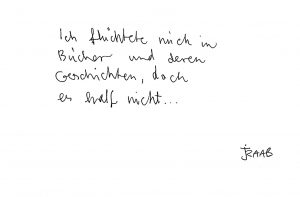 Ich flüchtete mich in
Bücher und deren
Geschichten, doch
es half nicht...
jRAAB